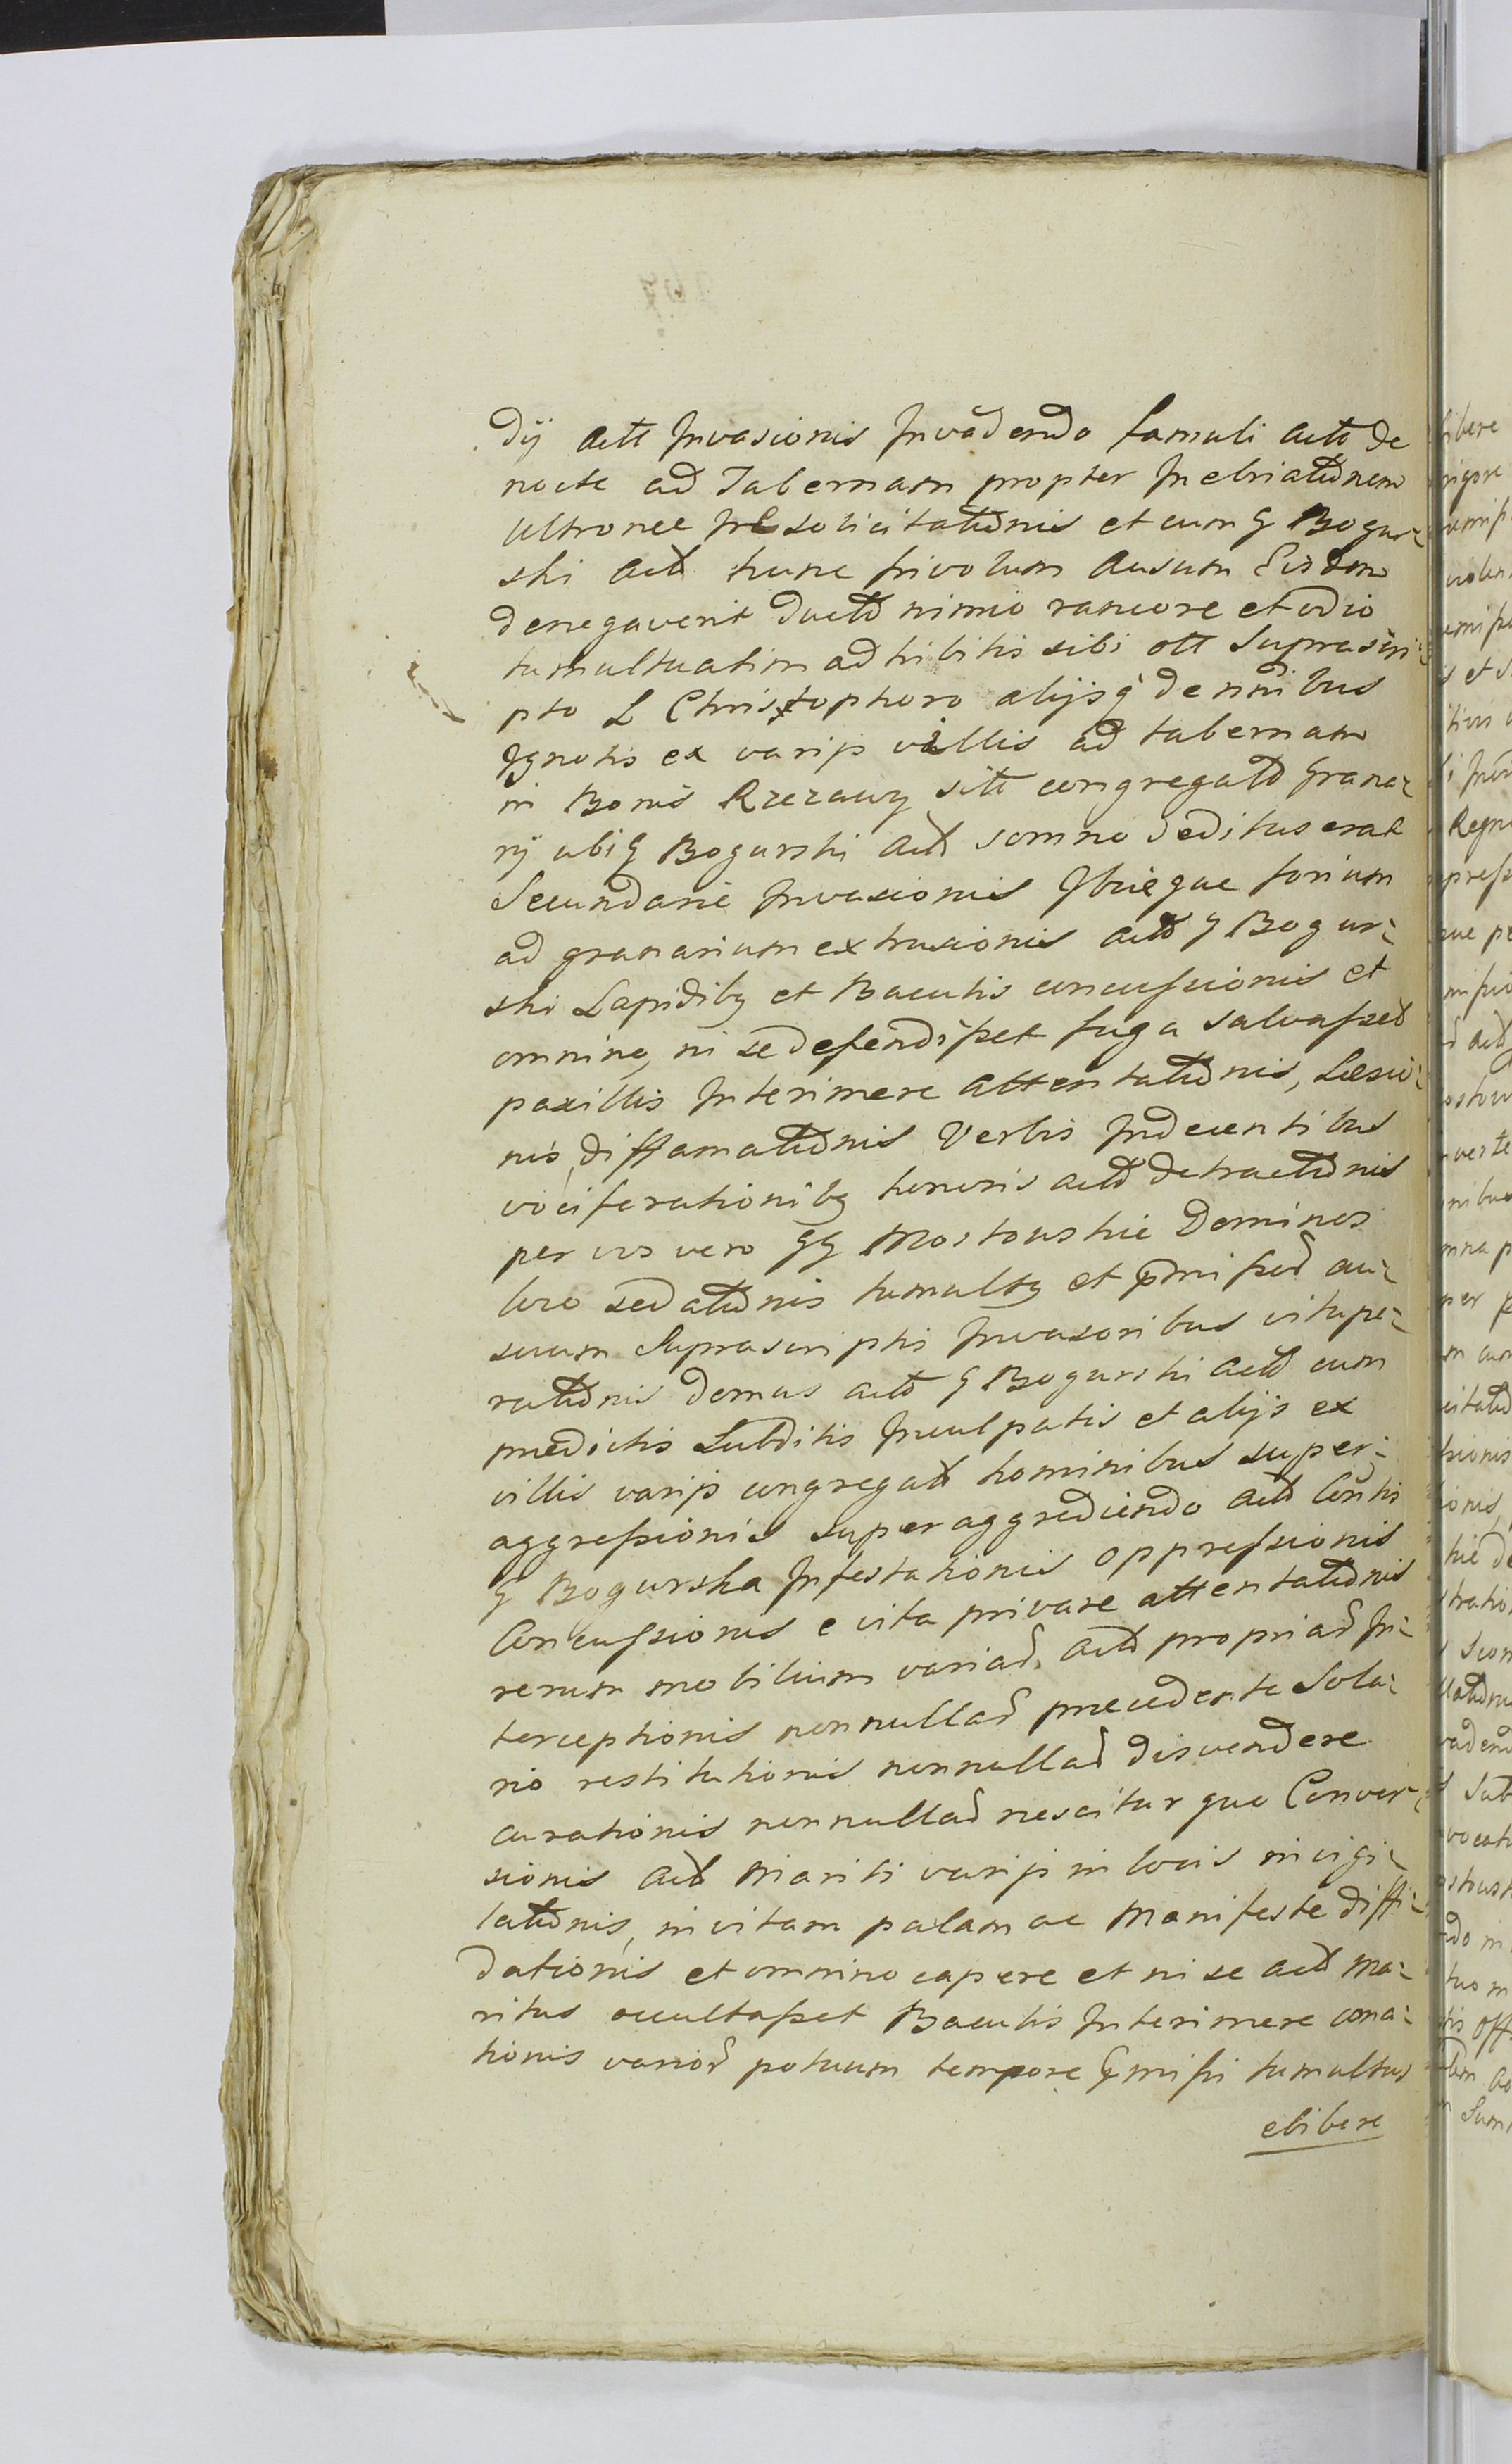 dij actt Invasionis Invadendo famuli actō de
nocte ad Tabernam propter Inebriatōnem
Ultronee solicitatōnis et cum G Bogur-
ski actō hunc frivolum Ausum Eisdem
denegaverit ductō nimio rancore et odio
tumultuatim adhibitis sibi ott Suprascri-
pto L Christophoro alijsq de nn̄ibus
Ignotis ex varijs villis ad tabernam
in Bonis Rzezawy sitt congregatō Grana-
rij ubi G Bogurski actō somno deditus erat
Secundarie Invasionis Ibiegue forium
ad granarium extrusionis actō G Bogur-
ski Lapidibq et Baculis concussionis et
omnino, ni se defendisset fuga salvasset
paxillis Interimere attentatōnis, Læsio-
nis, diffamatōnis Verbis Indecentibus
vociferationibq honoris actō detractōnis
per vos vero GG Mostowskie Dominos
loco sedatōnis tumultq et p̄missoꝝ au-
suum Suprascriptis Invasoribus vitupe-
ratōnis domus actō G Bogurski actō cum
prædictis Subditis Inculpatis et alijs ex
villis varijs congregatō hominibus super-
aggressionis superaggrediendo actō Cont̄is
G Bogurska Infestationis oppressionis
Concussionis e vita privare attentatōnis
rerum mobilium variaꝝ actō propriaꝝ In-
terceptionis nonnullaꝝ præcedente Sola-
rio restitutionis nonnullaꝝ disvendere
curationis nonnullaꝝ nescitur quo Conver-
sionis actō Mariti varijs in locis invigi-
latōnis, in vitam palam ac Manifeste diffi-
dationis et omnino capere et ni se actō Ma-
ritus occultasset Baculis Interimere cona-
tionis varioꝝ potuum tempore p̄missi tumultus
ebibere